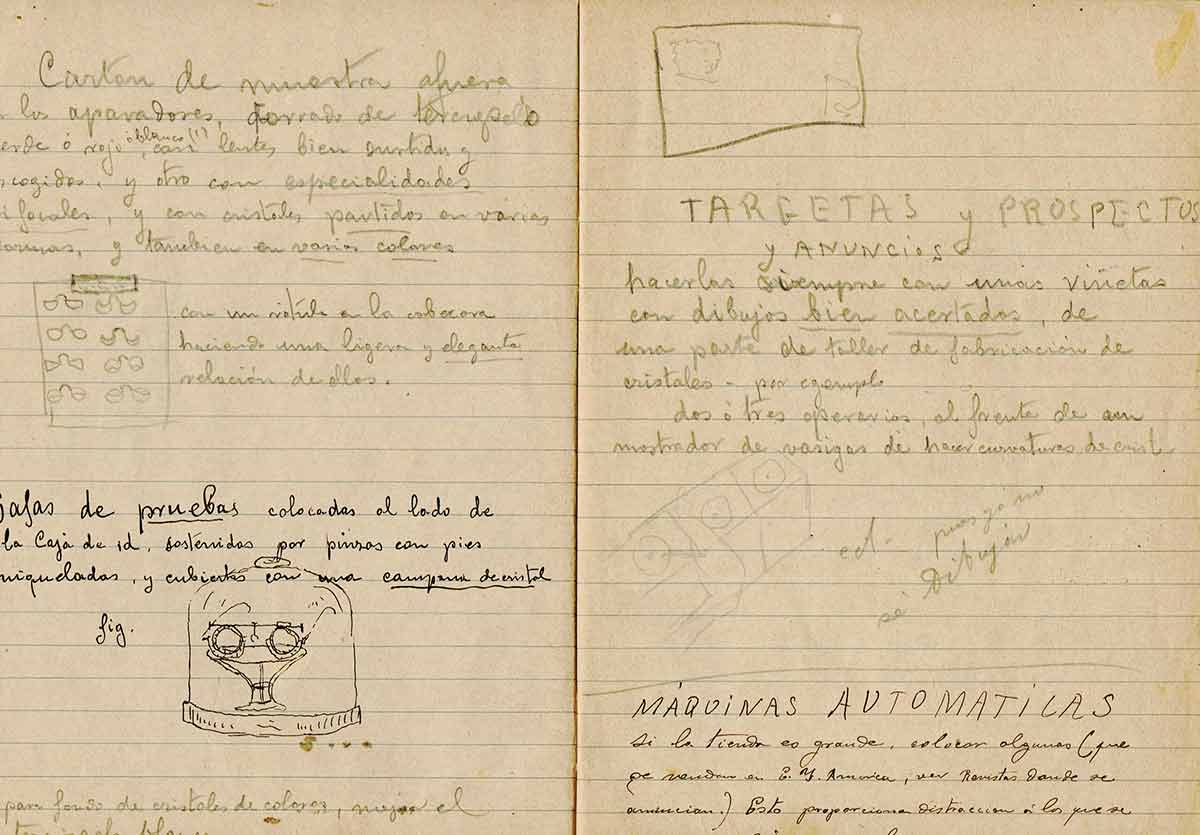 Carton de muestra afuera
los aparadores, forrado de terciopelo
erde ó rojo, ó blanco (1) con lentes bien surtidos y
scogidos, y otro con especialidades
ifocales, y con cristales partidos en varias
ormas, y tambien en varios colores
con un rótulo en la cabecera
haciendo una ligera y elegante
relación de ellos.
Gafas de pruebas colocadas al lado de
la Caja de id, sostenidas por pinzas con pies
niqueladas, y cubiertas con una campana de cristal
fig.
para fondo de cristales de colores, mejor el
terciopelo blanco
TARGETAS y PROSPECTOS
y ANUNCIOS
hacerlas siempre con unas viñetas
con dibujos bien acertados, de
una parte de taller de fabricación de
cristales - por egemplo
dos ó tres operarios, al frente de un
mostrador de vasigas de hacer curvaturas de crist
ect.
sé Dibujar
MÁQUINAS AUTOMATICAS
Si la tienda es grande, colocar algunas (que
se venden en E. U. America, ver Revistas donde se
anuncian.) Esto proporciona distraccion á los que se